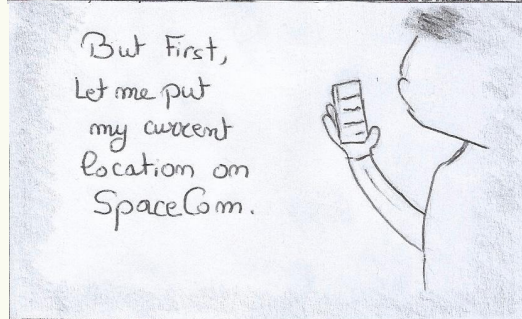 But First,
Let me put
my current
location on
SpaceCom.